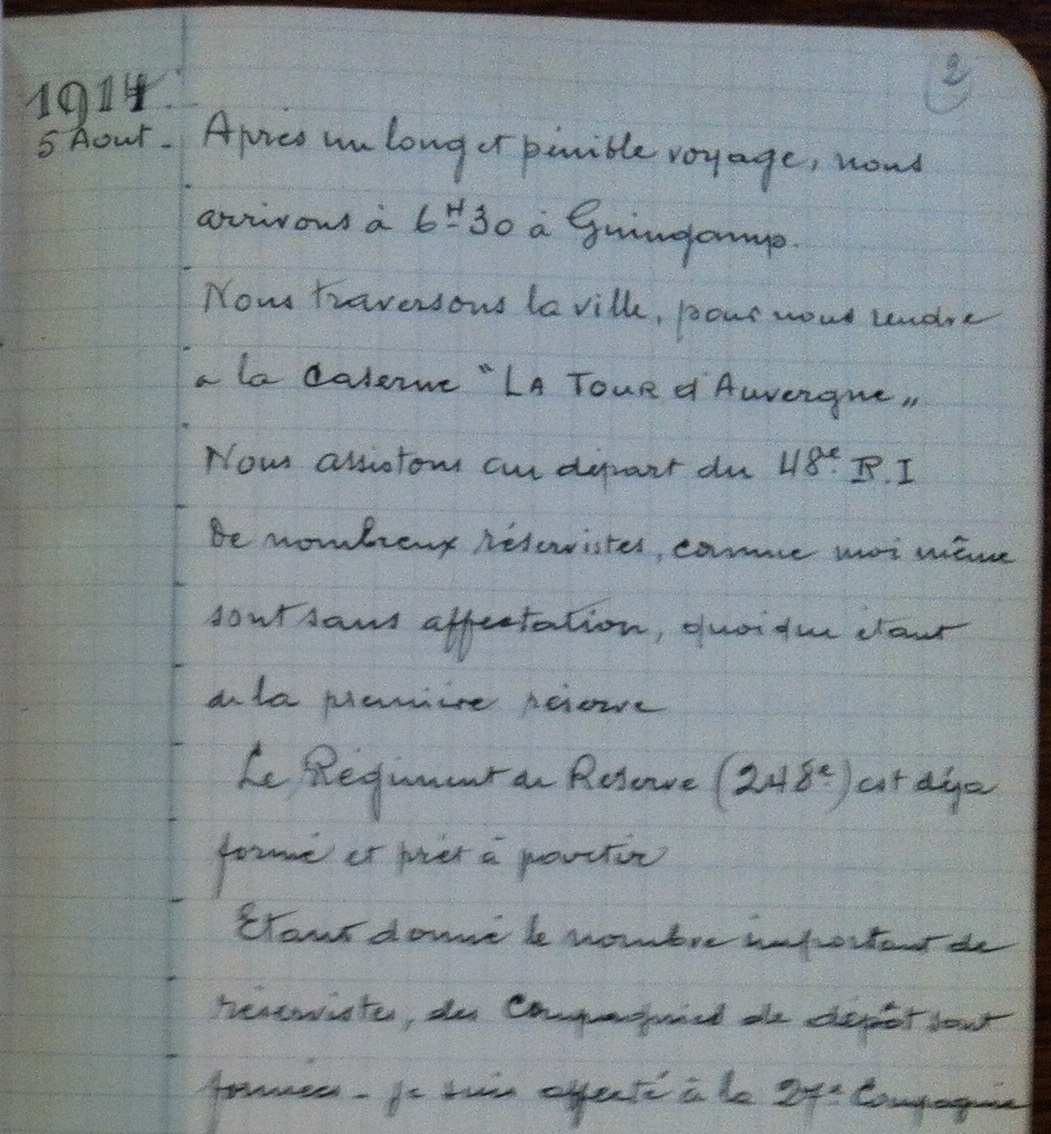 2
1914
5 Aout - Après un long et pénible voyage, nous
arrivons à 6H30 à Guingamp.
Nous traversons la ville, pour nous rendre
a la Caserne "LA TOUR d'Auvergne"
Nous assistons au départ du 48e R.I
De nombreux réservistes, comme moi même
sont sans affectation, quoique étant
de la première réserve
Le Régiment de Réserve (248e) est déja
formé et prêt à partir
Etant donné le nombre important de
réservistes, des Compagnies de dépôt sont
formées - je suis affecté à la 27e Compagnie